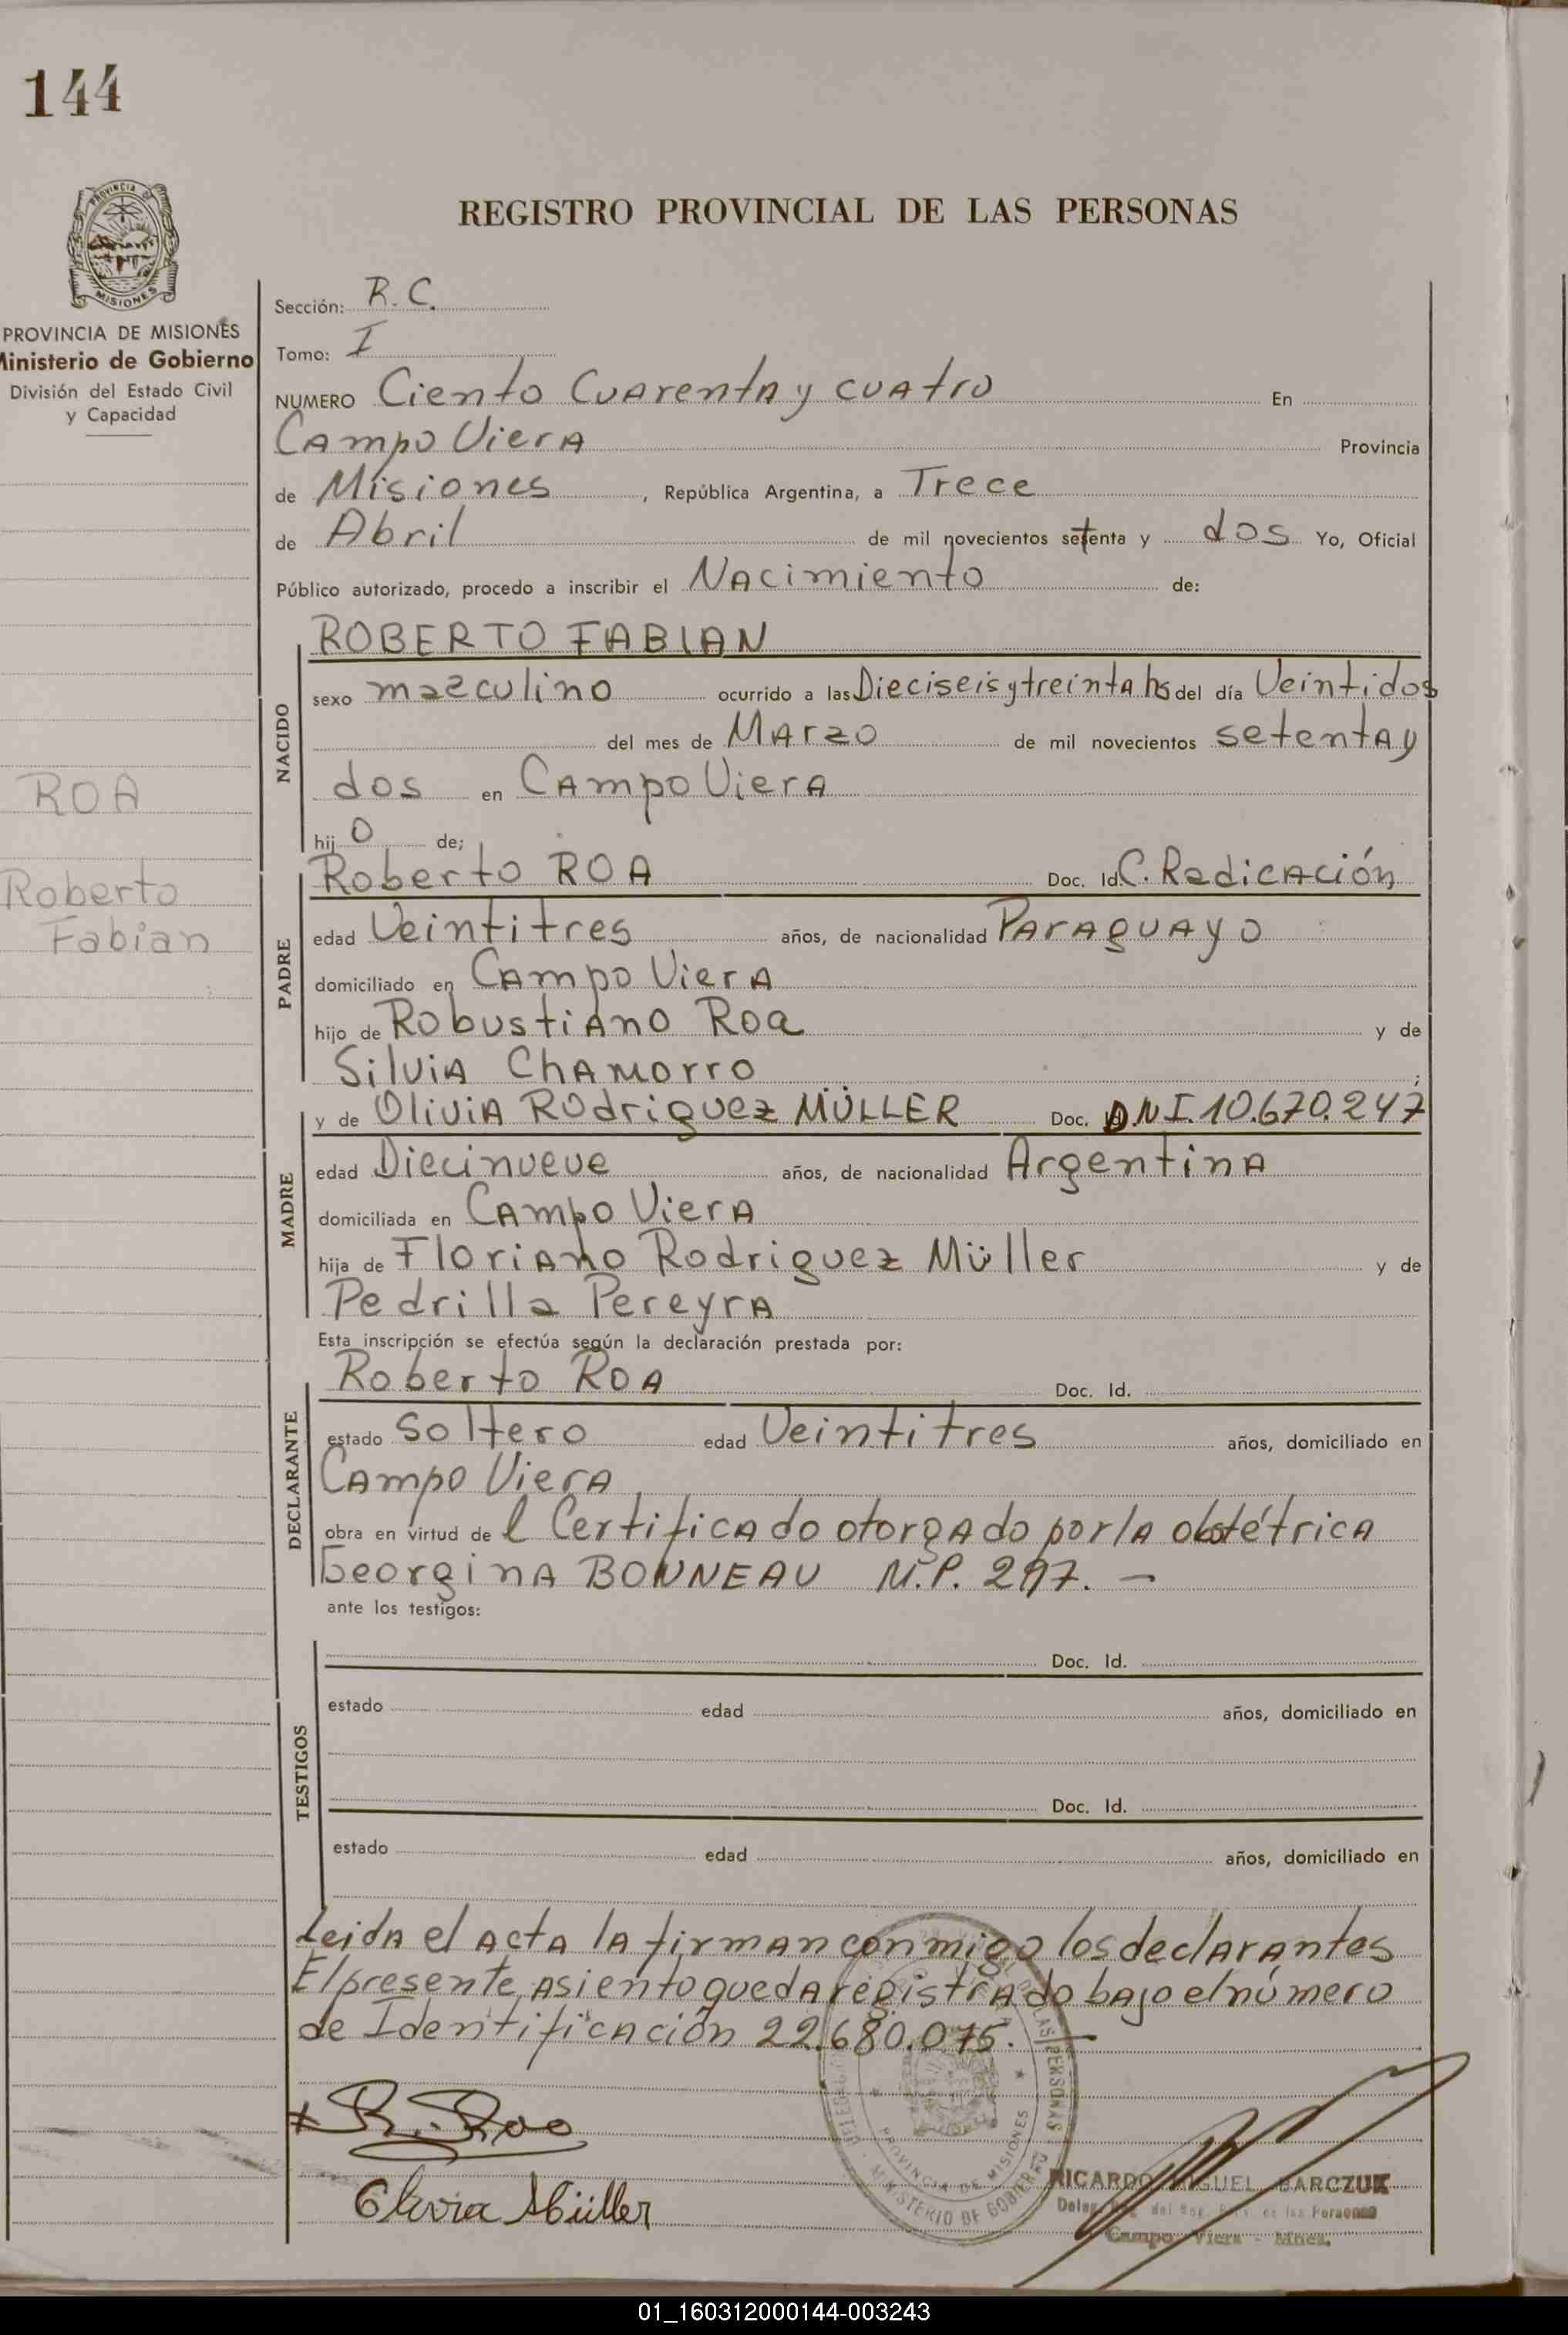 144
PROVINCIA DE MISIONES
Ministerio de Gobierno
División del Estado Civil
y Capacidad
ROA
Roberto
Fabian
REGISTRO PROVINCIAL DE LAS PERSONAS
Sección: R.C.
Tomo: I
NUMERO Ciento Cuarenta y cuatro En
Campo Viera Provincia
de Misiones, República Argentina, a Trece
de Abril de mil novecientos setenta y dos Yo, Oficial
Público autorizado, procedo a inscribir el Nacimiento de:
NACIDO
ROBERTO FABIAN
sexo masculino ocurrido a las Dieciseis y treinta hs del día Veintidos
del mes de Marzo de mil novecientos setenta y
dos en Campo Viera
hijo de;
PADRE
Roberto ROA Doc. Id. C. Radicación
edad Veintitres años, de nacionalidad Paraguayo
domiciliado en Campo Viera
hijo de Robustiano Roa y de
Silvia Chamorro;
MADRE
y de Olivia Rodriguez MÜLLER Doc. D.N.I. 10.670.247
edad Diecinueve años, de nacionalidad Argentina
domiciliada en Campo Viera
hija de Floriano Rodriguez Müller y de
Pedrilla Pereyra
Esta inscripción se efectúa según la declaración prestada por:
DECLARANTE
Roberto ROA Doc. Id.
estado soltero edad Veintitres años, domiciliado en
Campo Viera
obra en virtud de l Certificado otorgado por la obstétrica
Georgina BONNEAU M.P. 297. —
ante los testigos:
TESTIGOS
Doc. Id.
estado edad años, domiciliado en
Doc. Id.
estado edad años, domiciliado en
Leida el acta la firman conmigo los declarantes
El presente asiento queda registrado bajo el número
de Identificación 22.680.075. —
R. Roa
Olivia Müller
PROVINCIA DE MISIONES
MINISTERIO DE GOBIERNO
RICARDO MIGUEL BARCZUK
de las Personas
Campo Viera - Mnes.
01_160312000144-003243